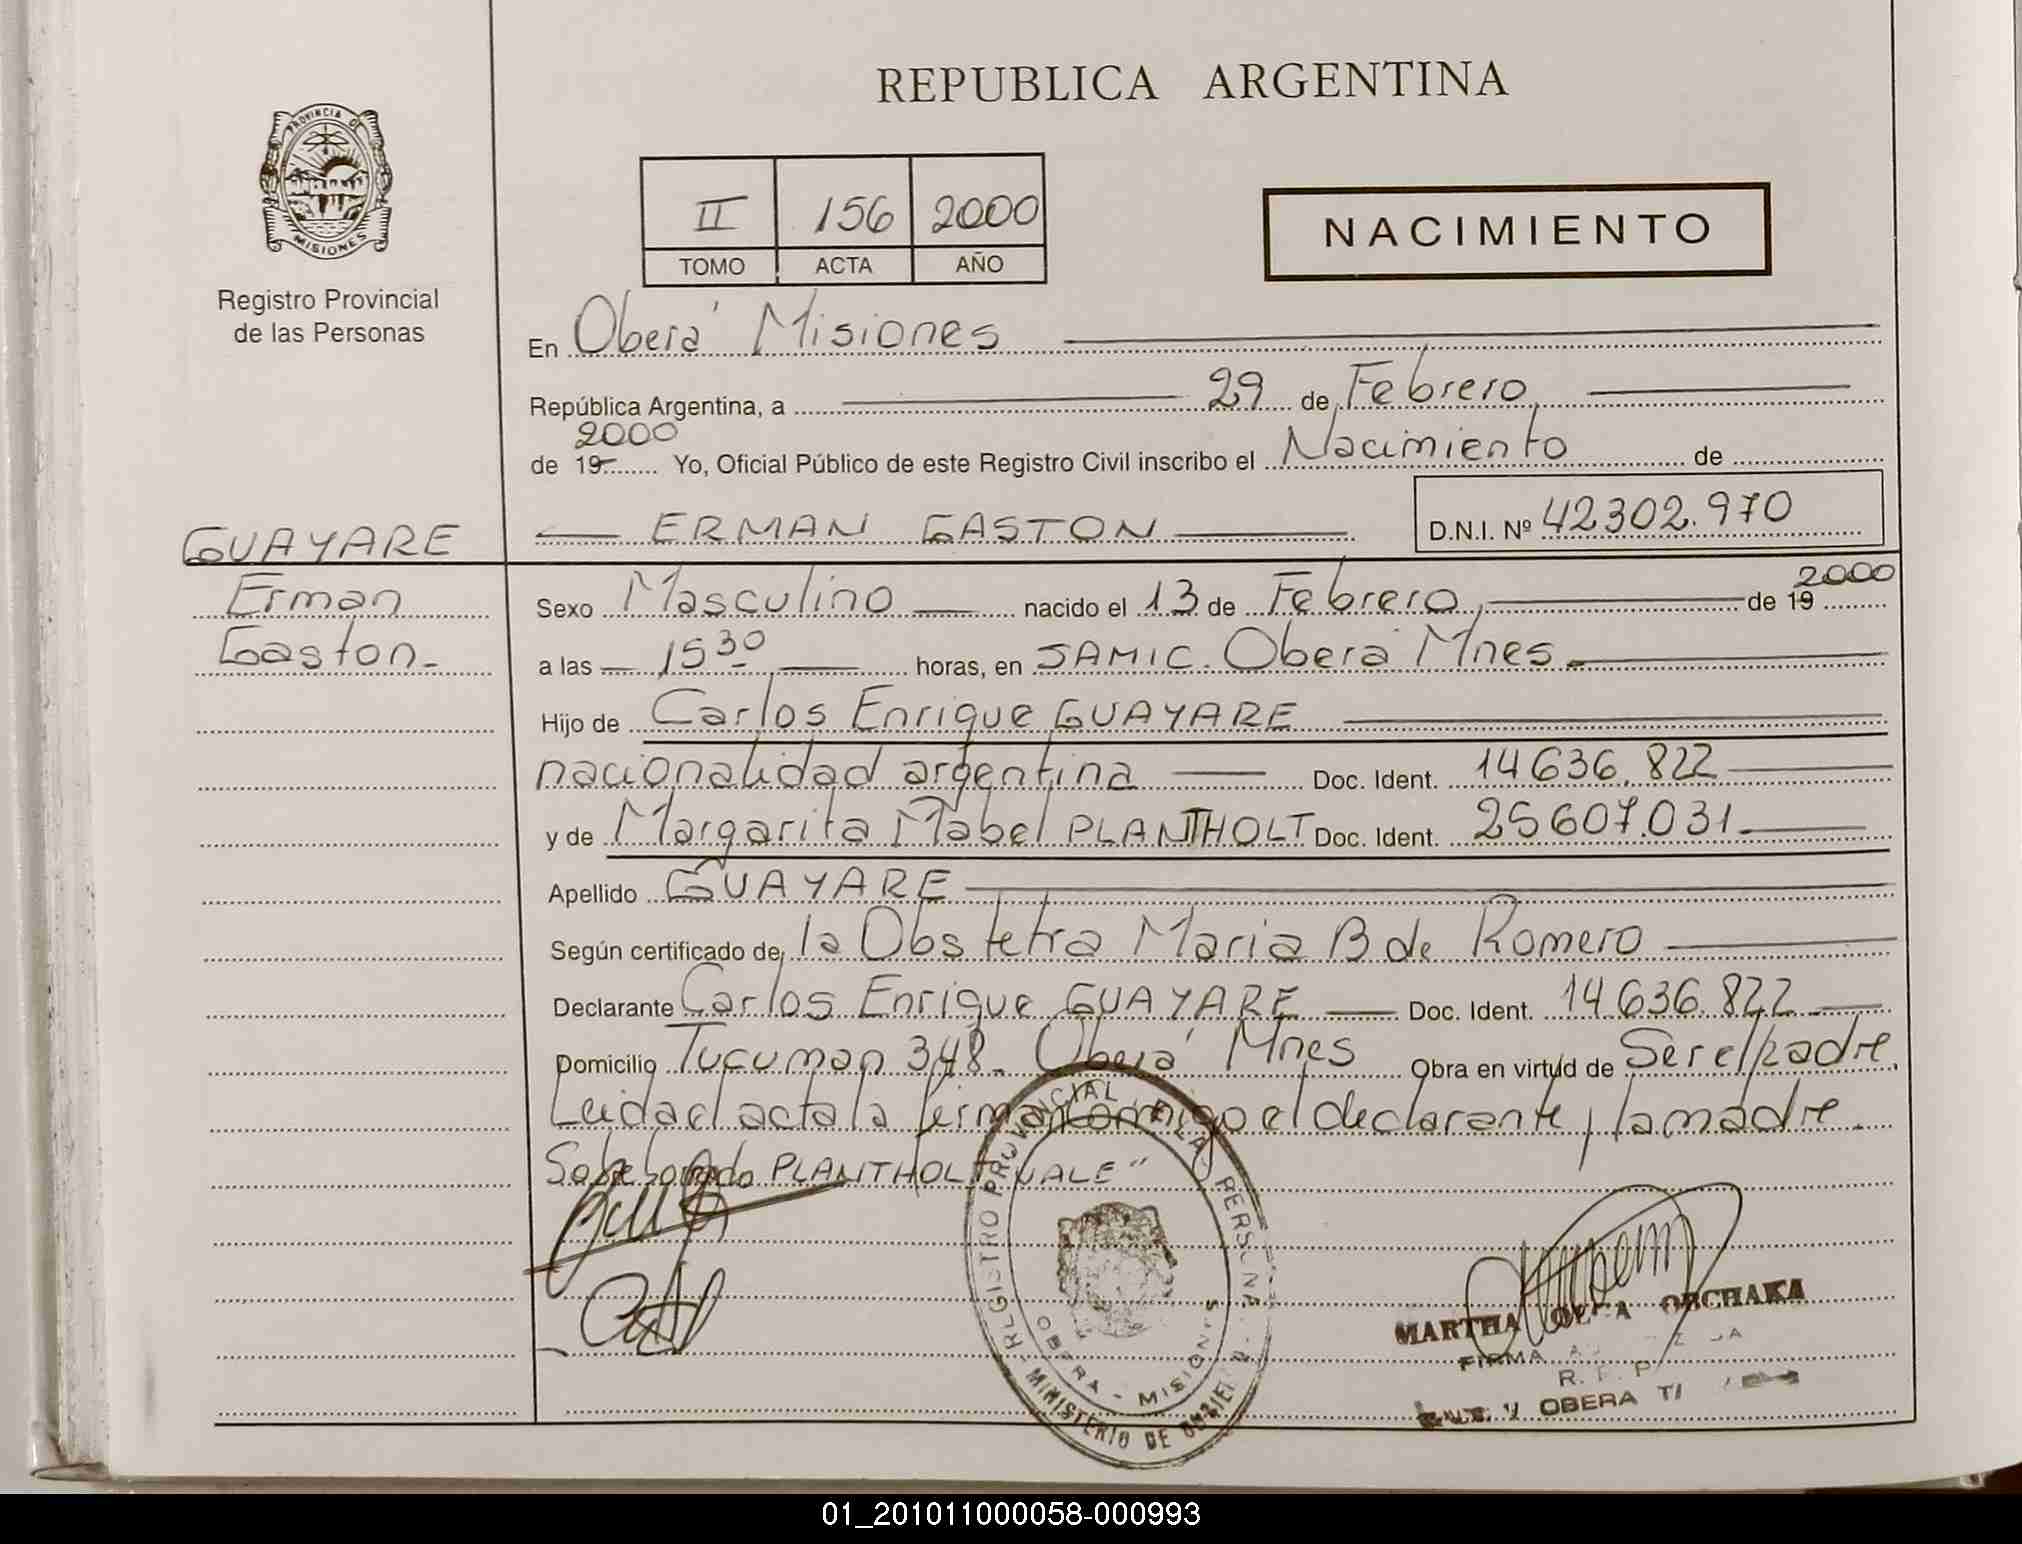 REPUBLICA ARGENTINA
PROVINCIA DE
MISIONES
Registro Provincial
de las Personas
II 156 2000
TOMO ACTA AÑO
NACIMIENTO
En Oberá Misiones
República Argentina, a 29 de Febrero
2000
de 19 Yo, Oficial Público de este Registro Civil inscribo el Nacimiento de
GUAYARE
Erman
Gaston.-
ERMAN GASTON D.N.I. Nº 42302.970
Sexo Masculino nacido el 13 de Febrero, de 19 2000
a las 15 30 horas, en SAMIC. Oberá Mnes.
Hijo de Carlos Enrique GUAYARE
nacionalidad argentina Doc. Ident. 14636.822
y de Margarita Mabel PLANTHOLT Doc. Ident. 25607.031.
Apellido GUAYARE
Según certificado de la Obstetra Maria B de Romero
Declarante Carlos Enrique GUAYARE Doc. Ident. 14636.822
Domicilio Tucuman 348. Oberá Mnes Obra en virtud de Ser el padre.
Leida el acta la firman conmigo el declarante y la madre.
Sobreborrado PLANTHOLT VALE"
REGISTRO PROVINCIAL DE LAS PERSONAS
OBERA - MISIONES
MINISTERIO DE
MARTHA OLGA OBCHAKA
FIRMA
R. P.
OBERA
01_201011000058-000993